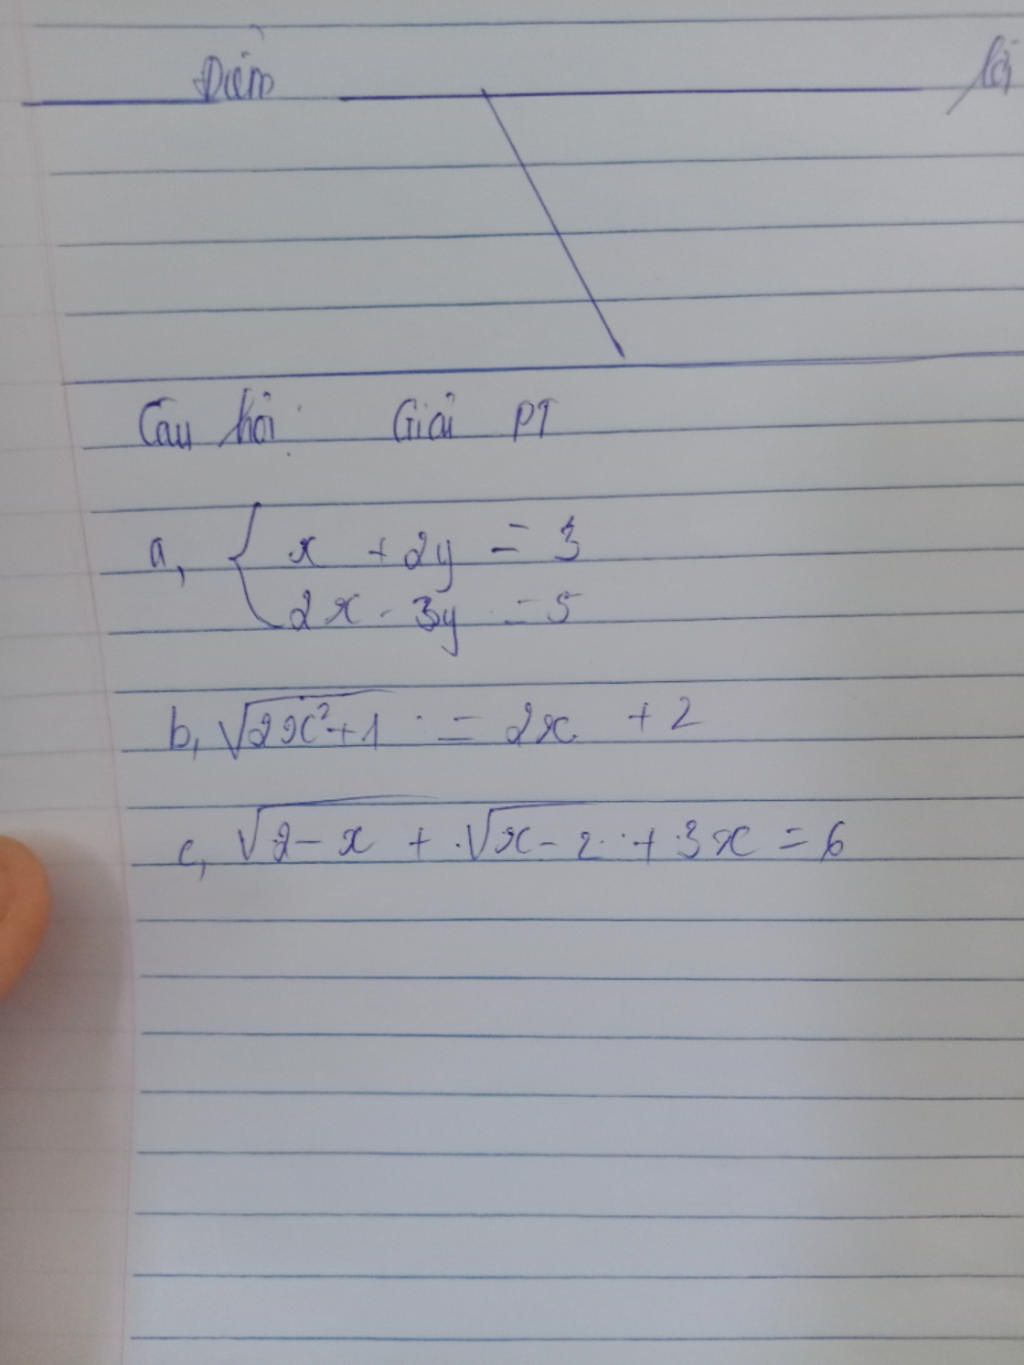 Điểm
Câu hỏi: Giải PT
a, { x + 2y = 3
2x - 3y = 5
b, √2x²+1 = 2x + 2
c, √2-x + √x-2 + 3x = 6